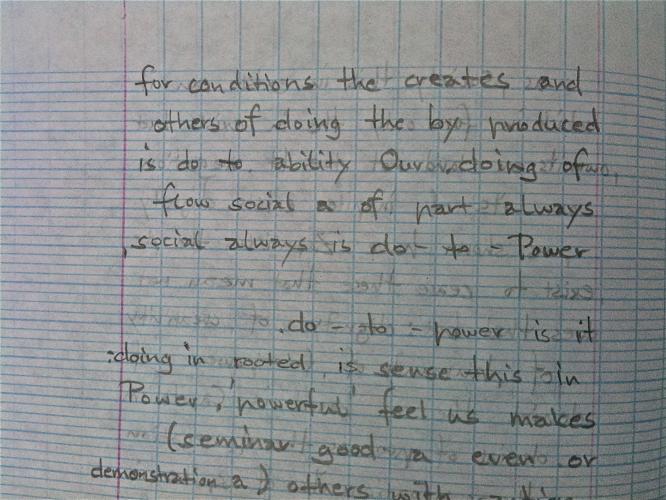 for conditions the creates and
others of doing the by produced
is do to ability Our .doing of
flow social a of part always
,social always is do - to - Power
.do - to - power is it
:doing in rooted is sense this In
Power .'powerful' feel us makes
(seminar good a even or
demonstration a) others with